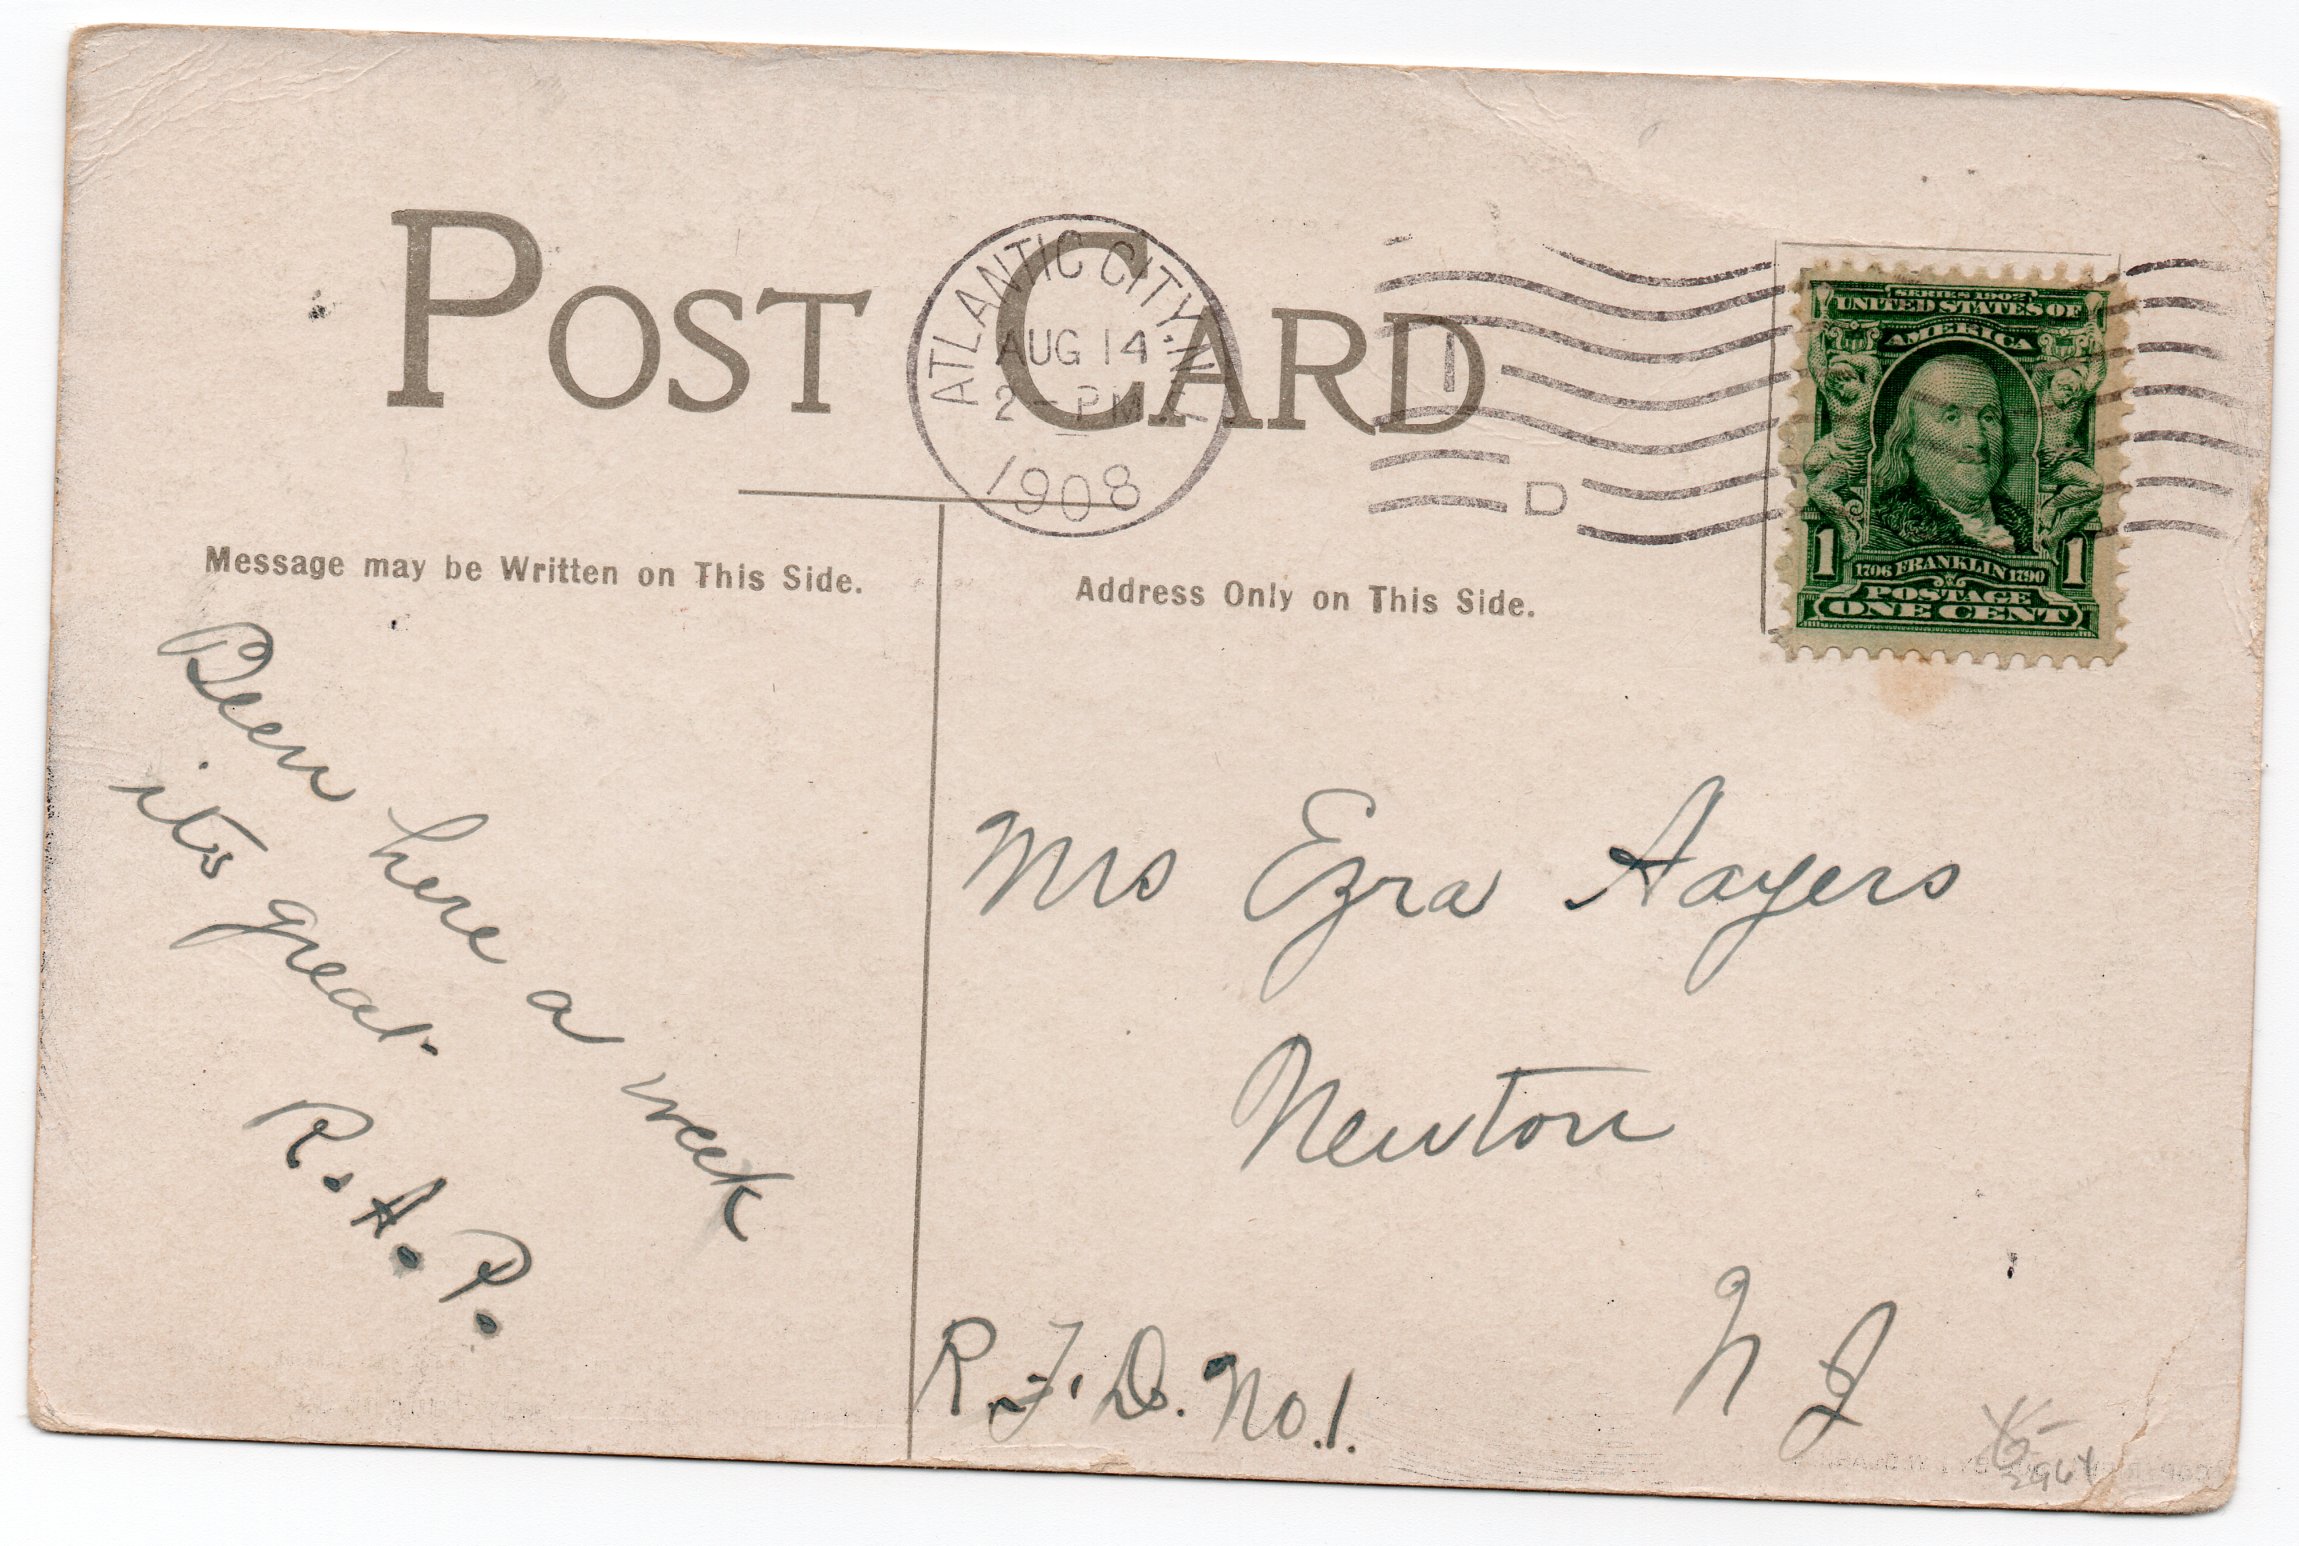 POST CARD
ATLANTIC CITY. N.J.
AUG 14
2 - PM
1908
1
D
SERIES 1902
UNITED STATES OF
AMERICA
1706 FRANKLIN 1790
1 1
POSTAGE
ONE CENT
Message may be Written on This Side.
Been here a week
its great.
R. A. P.
Address Only on This Side.
Mrs Ezra Aayers
Newton
N J
R. F. D. No. 1.